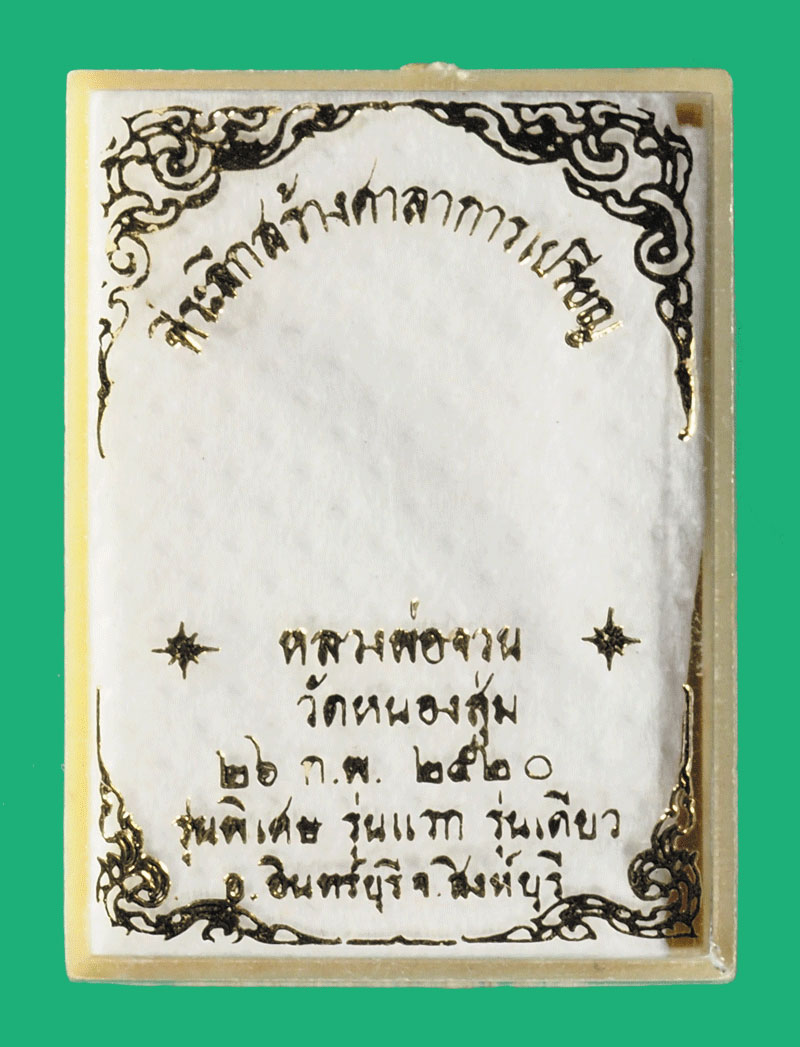 ที่ระลึกสร้างศาลาการเปรียญ
หลวงพ่อจวน
วัดหนองสุ่ม
๒๖ ก.พ. ๒๕๒๐
รุ่นพิเศษ รุ่นแรก รุ่นเดียว
อ.อินทร์บุรี จ.สิงห์บุรี